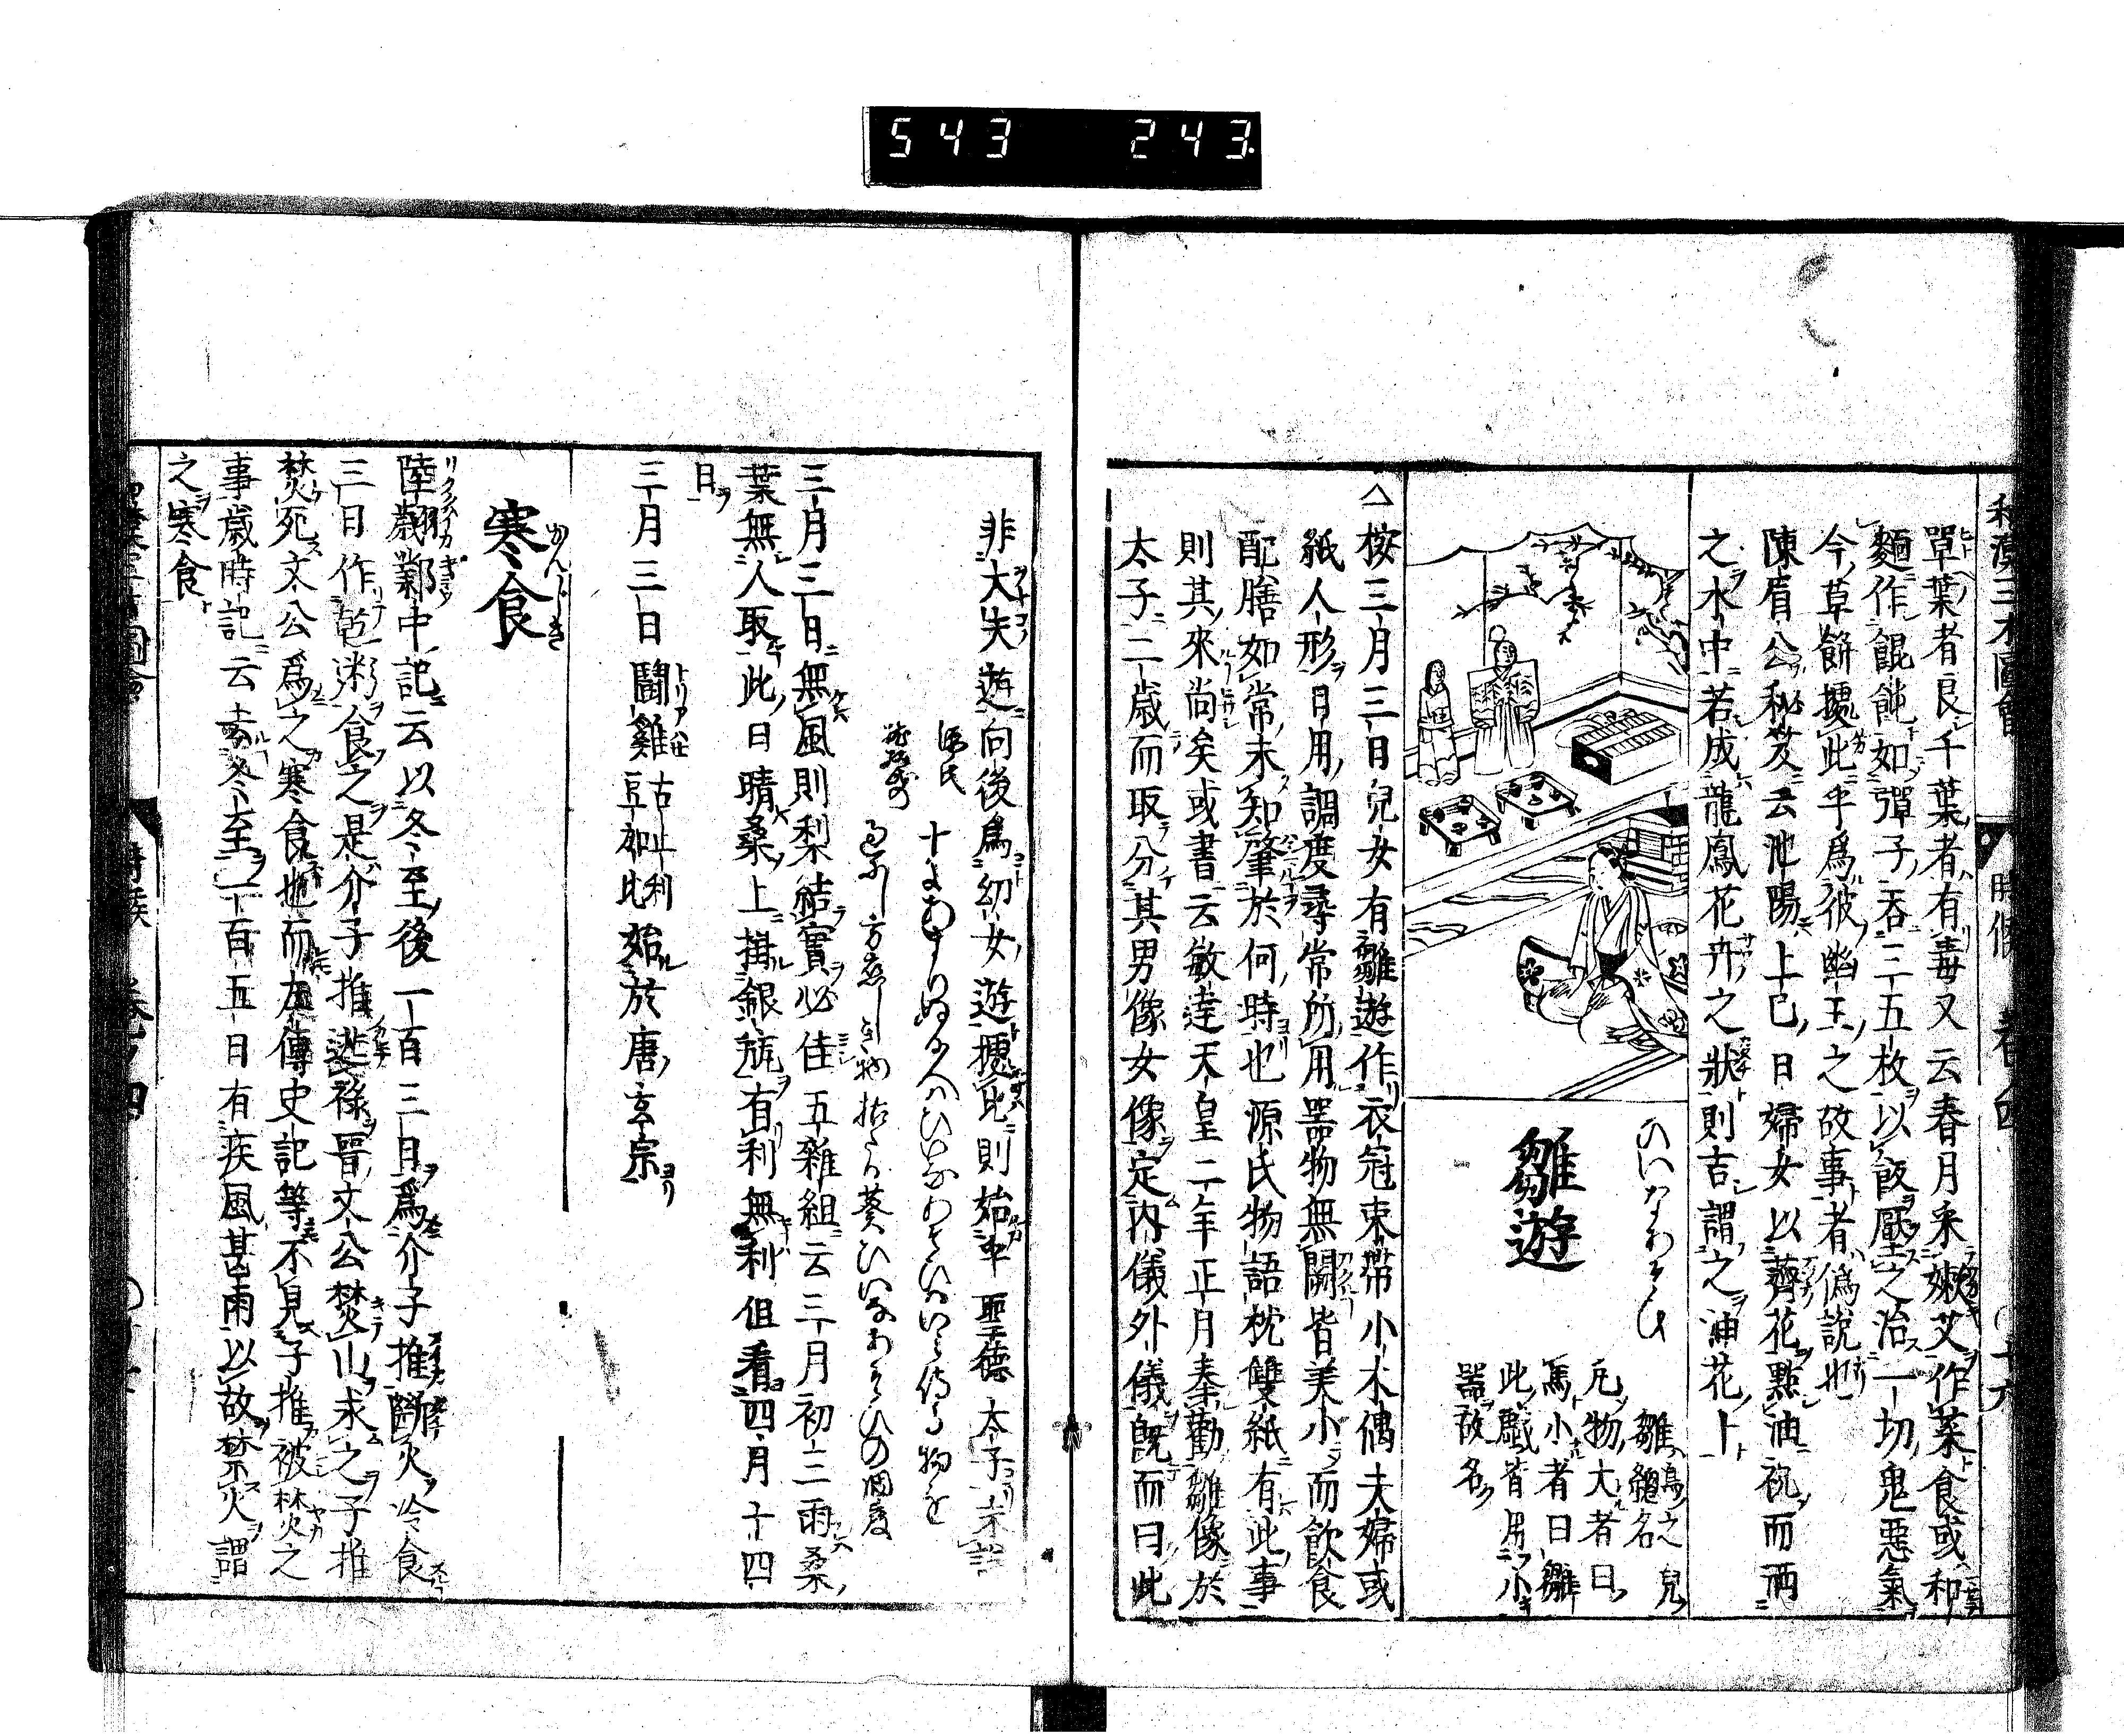 543 243
和漢三才圖會 時候 卷之四 ○十六
單葉者良千葉者有毒又云春月采嫩艾作菜食或和
麵作餛飩如彈子吞三五枚以飯壓之治一切鬼惡氣
今草餅據此乎爲彼幽王之故事者僞說也
陳眉公秘笈云池陽上巳日婦女以薺花點油祝而洒
之水中若成龍鳳花卉之狀則吉謂之油花卜
ひいなあそひ
雛遊
雛鳥之兒
總名
凡物大者曰
馬小者曰雛
此戲皆用小
器故名
△按三月三日兒女有雛遊作衣冠束帶小木偶夫婦或
紙人形日用調度尋常所用器物無闕皆美小而飲食
配膳如常未知肇於何時也源氏物語枕雙紙有此事
則其來尚矣或書云敏達天皇二年正月秦勸雛像於
太子二歲而取分其男像女像定内儀外儀既而曰此
非大夫遊向後爲幼女遊據此則始乎聖德太子
源氏 十にあまりぬる人はひいなあそひはいみ侍る物を
過にし方恋しき物枯たる葵ひいなあそひの調度
三月三日無風則梨結實必佳五雜組云三月初三雨桑
葉無人取此日晴桑上掛銀瓶有利無利但看四月十四
日
三月三日鬪雞 古止利豆加比 始於唐玄宗
かんじき
寒食
陸翽鄴中記云以冬至後一百三日爲介子推斷火冷食
三日作乾粥食之是介子推逃祿晉文公焚山求之子推
焚死文公爲之寒食也而左傳史記等不見子推被焚之
事歲時記云去冬至一百五日有疾風甚雨以故禁火謂
之寒食